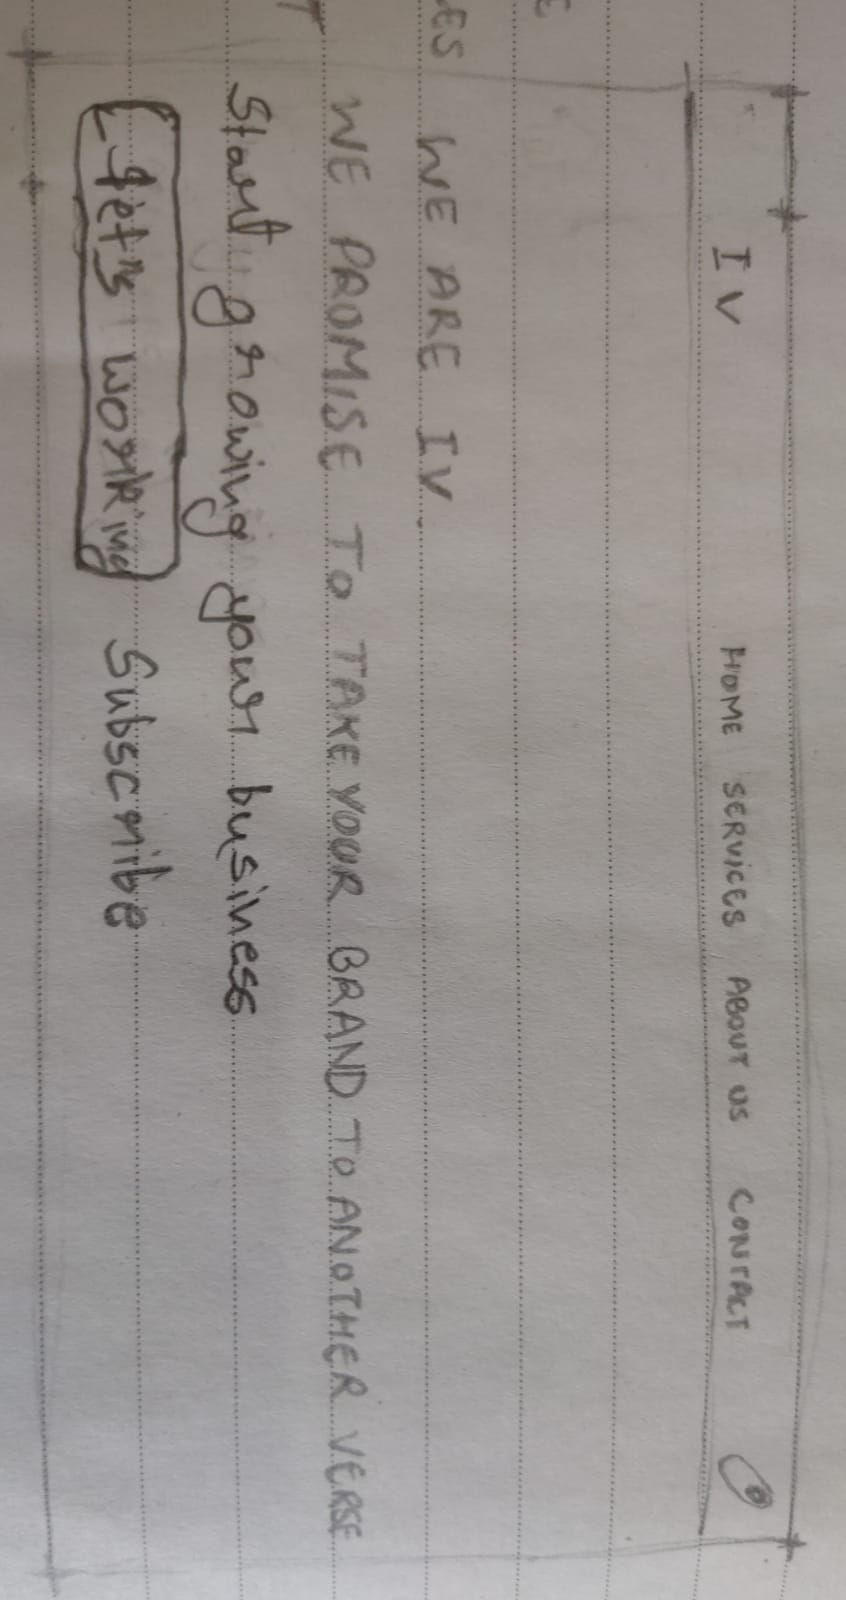 IV HOME SERVICES ABOUT US CONTACT
WE ARE IV.
WE PROMISE TO TAKE YOUR BRAND TO ANOTHER VERSE
Start growing your business
working Subscribe